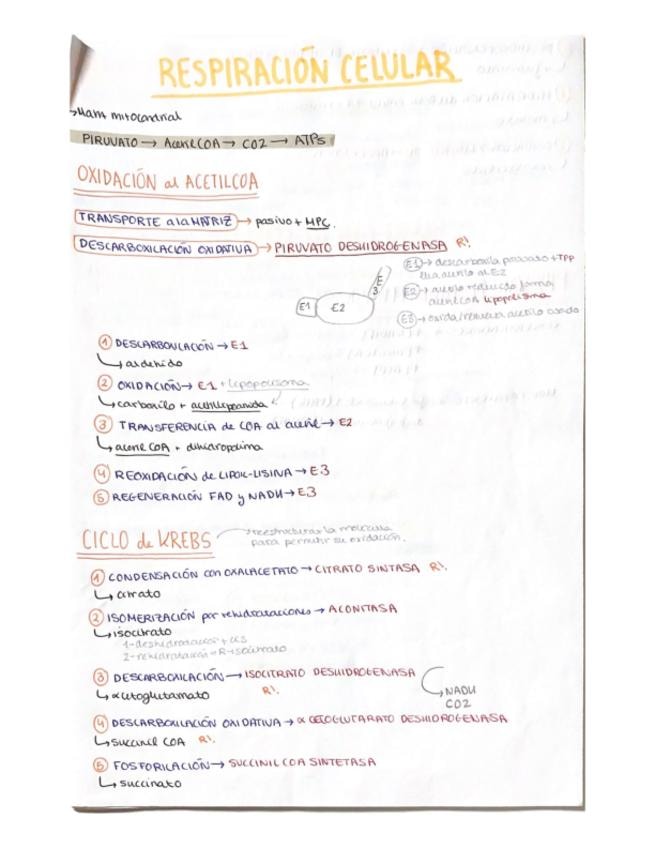 RESPIRACIÓN CELULAR
→Matriz mitocondrial
PIRUVATO → Acetil COA → CO2 → ATPs
OXIDACIÓN al ACETILCOA
TRANSPORTE a la MATRIZ → pasivo + MPC.
DESCARBOXILACIÓN OXIDATIVA → PIRUVATO DESHIDROGENASA R!.
E1 → descarboxila piruvato + TPP
lleva acetilo al E2
E2 → acetilo reducido forma
acetil con lipopolisina
E3 → oxida/renueva acetilo usado
E1 E2 E3
① DESCARBOXILACIÓN → E1
↳ aldehido
② OXIDACIÓN → E1 + lipopolisoma
↳ carboxilo + acetillipoamida
③ TRANSFERENCIA de COA al acetil → E2
↳ acetil COA + dihidropolima
④ REOXIDACIÓN de LIPOIL-LISINA → E3
⑤ REGENERACIÓN FAD y NADH → E3
CICLO de KREBS → reestructurar la molécula
para permitir su oxidación.
① CONDENSACIÓN con OXALACETATO → CITRATO SINTASA R!.
↳ citrato
② ISOMERIZACIÓN por rehidrataciones → ACONITASA
↳ isocitrato
1-deshidratación + cis
2-rehidratación = R-isocitrato
③ DESCARBOXILACIÓN → ISOCITRATO DESHIDROGENASA
↳ αcetoglutamato R!. NADH
CO2
④ DESCARBOXILACIÓN OXIDATIVA → α CETOGLUTARATO DESHIDROGENASA
↳ succinil COA R!.
⑤ FOSFORILACIÓN → SUCCINIL COA SINTETASA
↳ succinato